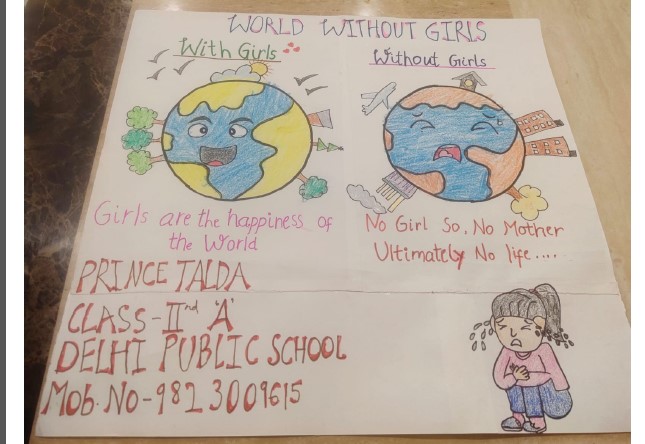 WORLD WITHOUT GIRLS
With Girls
Without Girls
Girls are the happiness of
the World
No Girl So, No Mother
Ultimately No life ....
PRINCE TALDA
CLASS-IInd 'A'
DELHI PUBLIC SCHOOL
Mob. No-9823009615